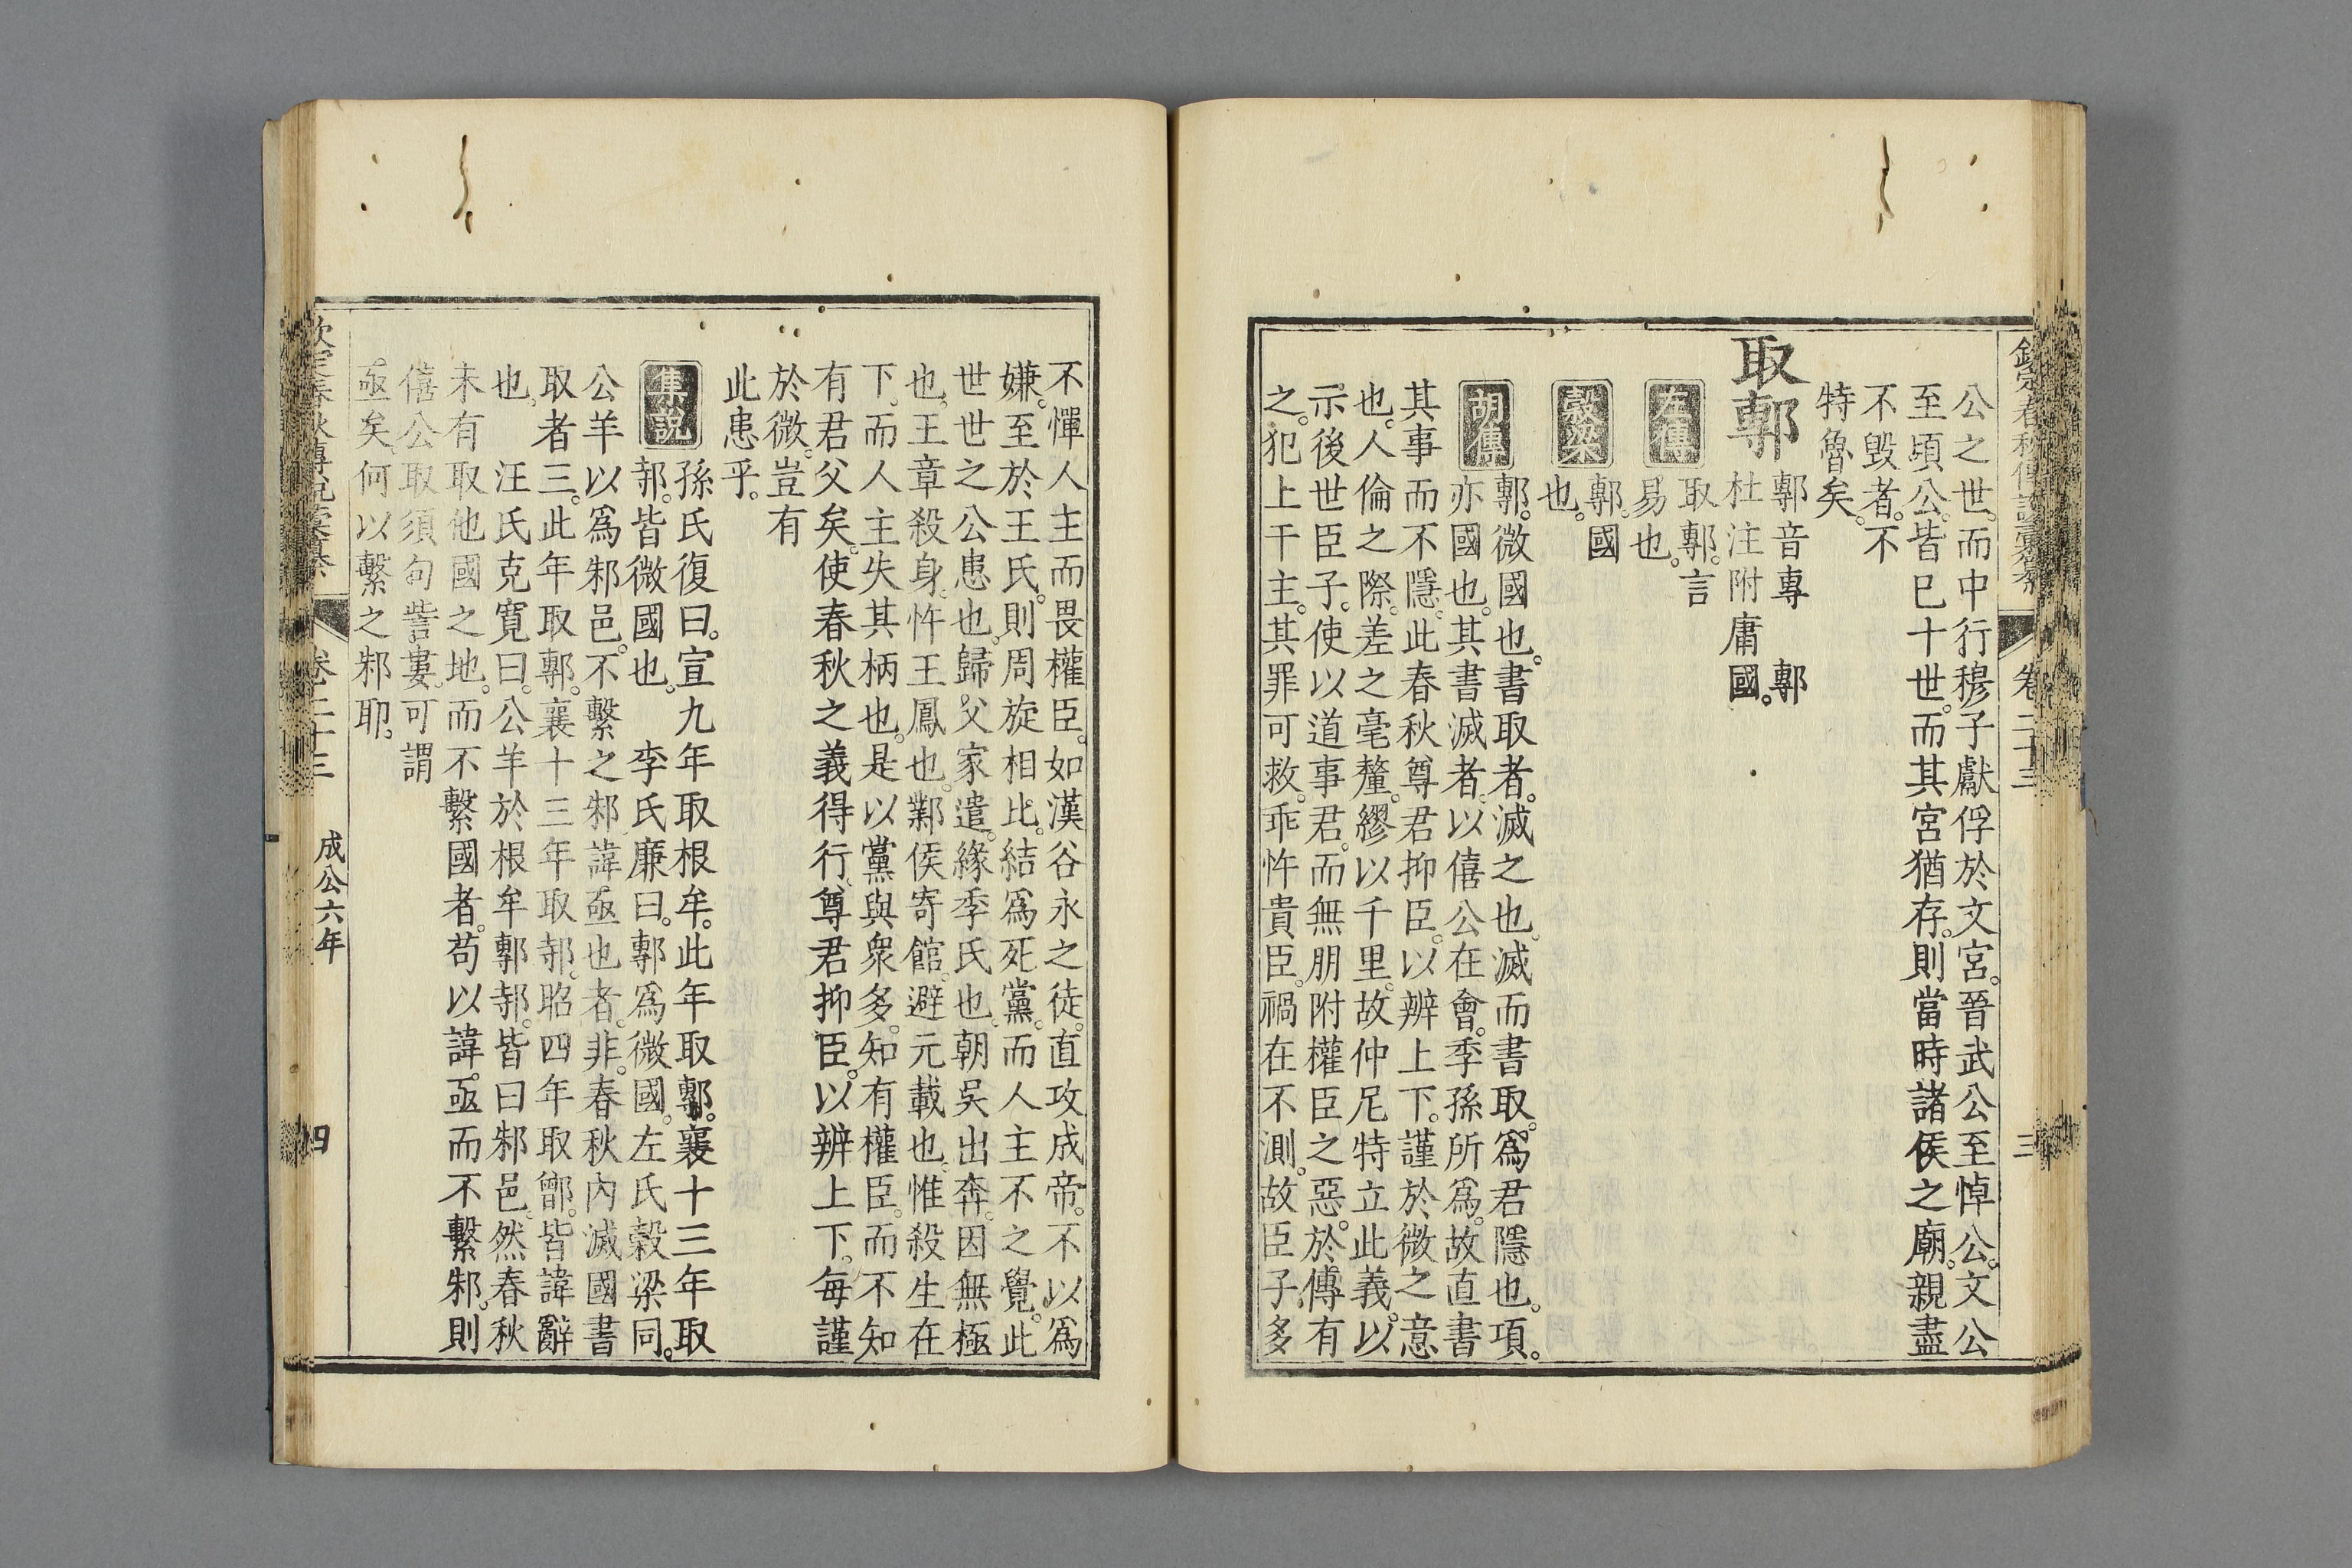 欽定春秋傳說彙纂 卷二十三 三
公之世。而中行穆子獻俘於文宮。晉武公至悼公。文公
至頃公。皆已十世。而其宮猶存。則當時諸侯之廟。親盡
不毀者。不
特魯矣。
取鄟
鄟音專 鄟
杜注附庸國。
左傳
取鄟。言
易也。
穀梁
鄟。國
也。
胡傳
鄟。微國也。書取者。滅之也。滅而書取。爲君隱也。項。
亦國也。其書滅者。以僖公在會。季孫所爲。故直書
其事而不隱。此春秋尊君抑臣。以辨上下。謹於微之意
也。人倫之際。差之毫釐。繆以千里。故仲尼特立此義。以
示後世臣子。使以道事君。而無朋附權臣之惡。於傳有
之。犯上干主。其罪可救。乖忤貴臣。禍在不測。故臣子。多
不憚人主而畏權臣。如漢谷永之徒。直攻成帝。不以爲
嫌。至於王氏。則周旋相比。結爲死黨。而人主不之覺。此
世世之公患也。歸父家遣。緣季氏也。朝吳出奔。因無極
也。王章殺身。忤王鳳也。鄴侯寄館。避元載也。惟殺生在
下。而人主失其柄也。是以黨與衆多。知有權臣。而不知
有君父矣。使春秋之義得行。尊君抑臣。以辨上下。每謹
於微。豈有
此患乎。
集說
孫氏復曰。宣九年取根牟。此年取鄟。襄十三年取
邿。皆微國也。 李氏廉曰。鄟爲微國。左氏穀梁同。
公羊以爲邾邑。不繫之邾諱亟也者。非。春秋內滅國書
取者三。此年取鄟。襄十三年取邿。昭四年取鄫。皆諱辭
也。 汪氏克寬曰。公羊於根牟鄟邿。皆曰邾邑。然春秋
未有取他國之地。而不繫國者。苟以諱。亟而不繫邾。則
僖公取須句訾婁。可謂
亟矣。何以繫之邾耶。
欽定春秋傳說彙纂 卷二十三 成公六年 四